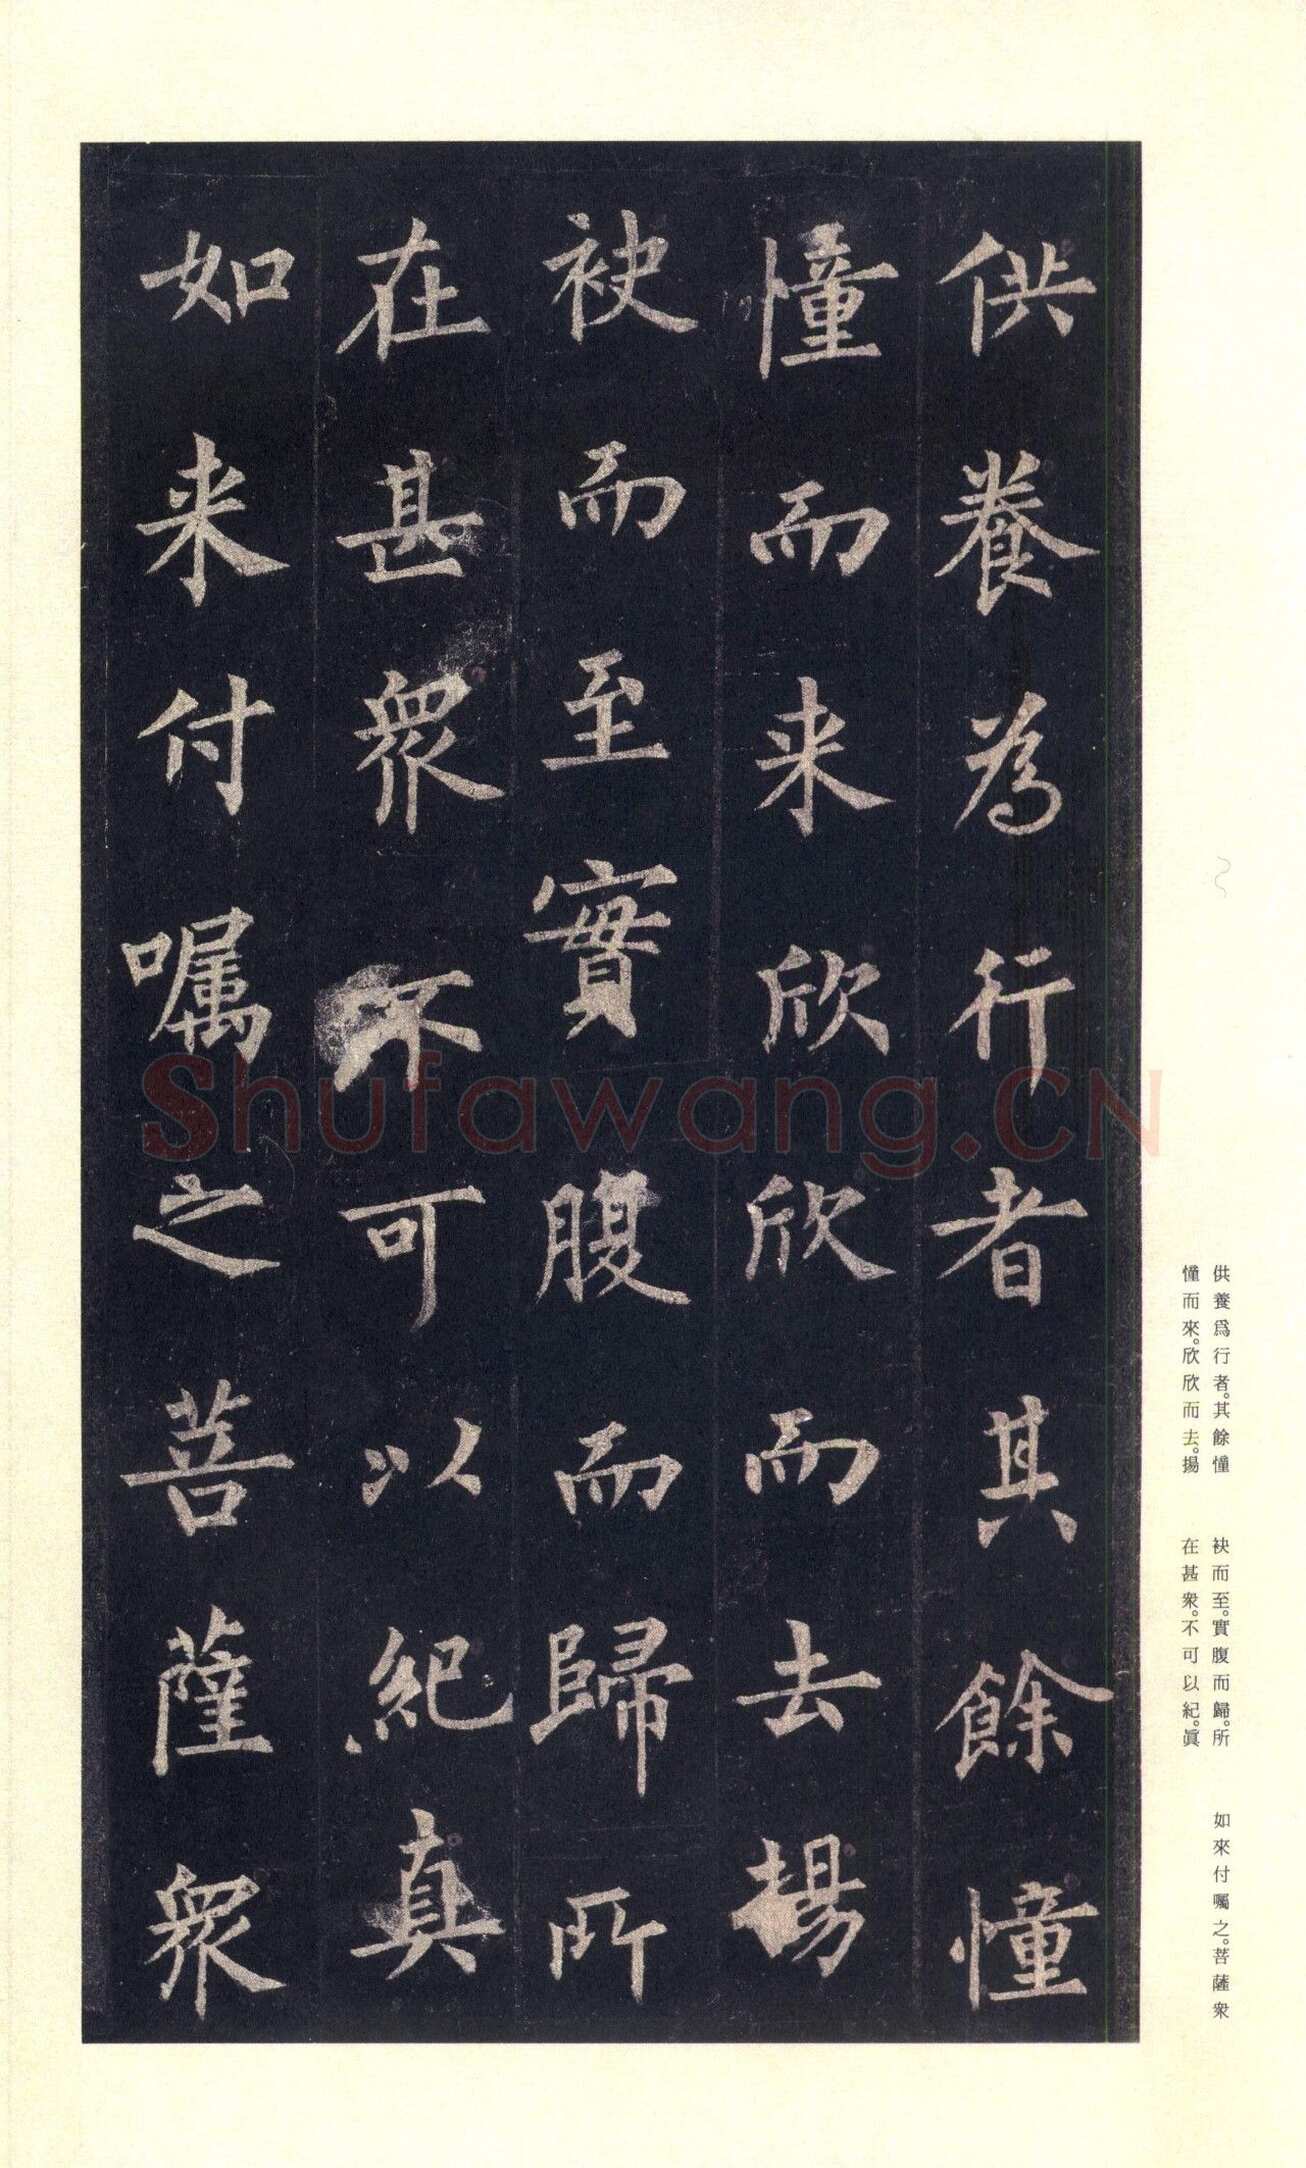 供養為行者其餘憧
憧而来欣欣而去揚
袂而至實腹而歸所
在甚衆不可以紀真
如来付嘱之菩薩衆
Shufawang.CN
供養爲行者。其餘憧
憧而來。欣欣而去。揚
袂而至。實腹而歸。所
在甚衆。不可以紀。眞
如來付囑之。菩薩衆